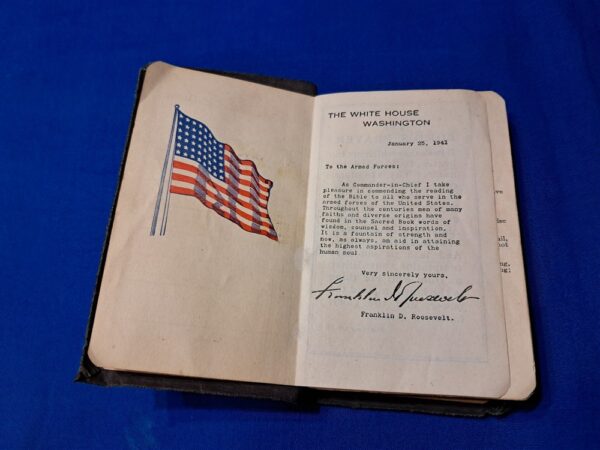 THE WHITE HOUSE
WASHINGTON
January 25, 1941
To the Armed Forces:
As Commander-in-Chief I take
pleasure in commending the reading
of the Bible to all who serve in the
armed forces of the United States.
Throughout the centuries men of many
faiths and diverse origins have
found in the Sacred Book words of
wisdom, counsel and inspiration.
It is a fountain of strength and
now, as always, an aid in attaining
the highest aspirations of the
human soul
Very sincerely yours,
Franklin D Roosevelt
Franklin D. Roosevelt.